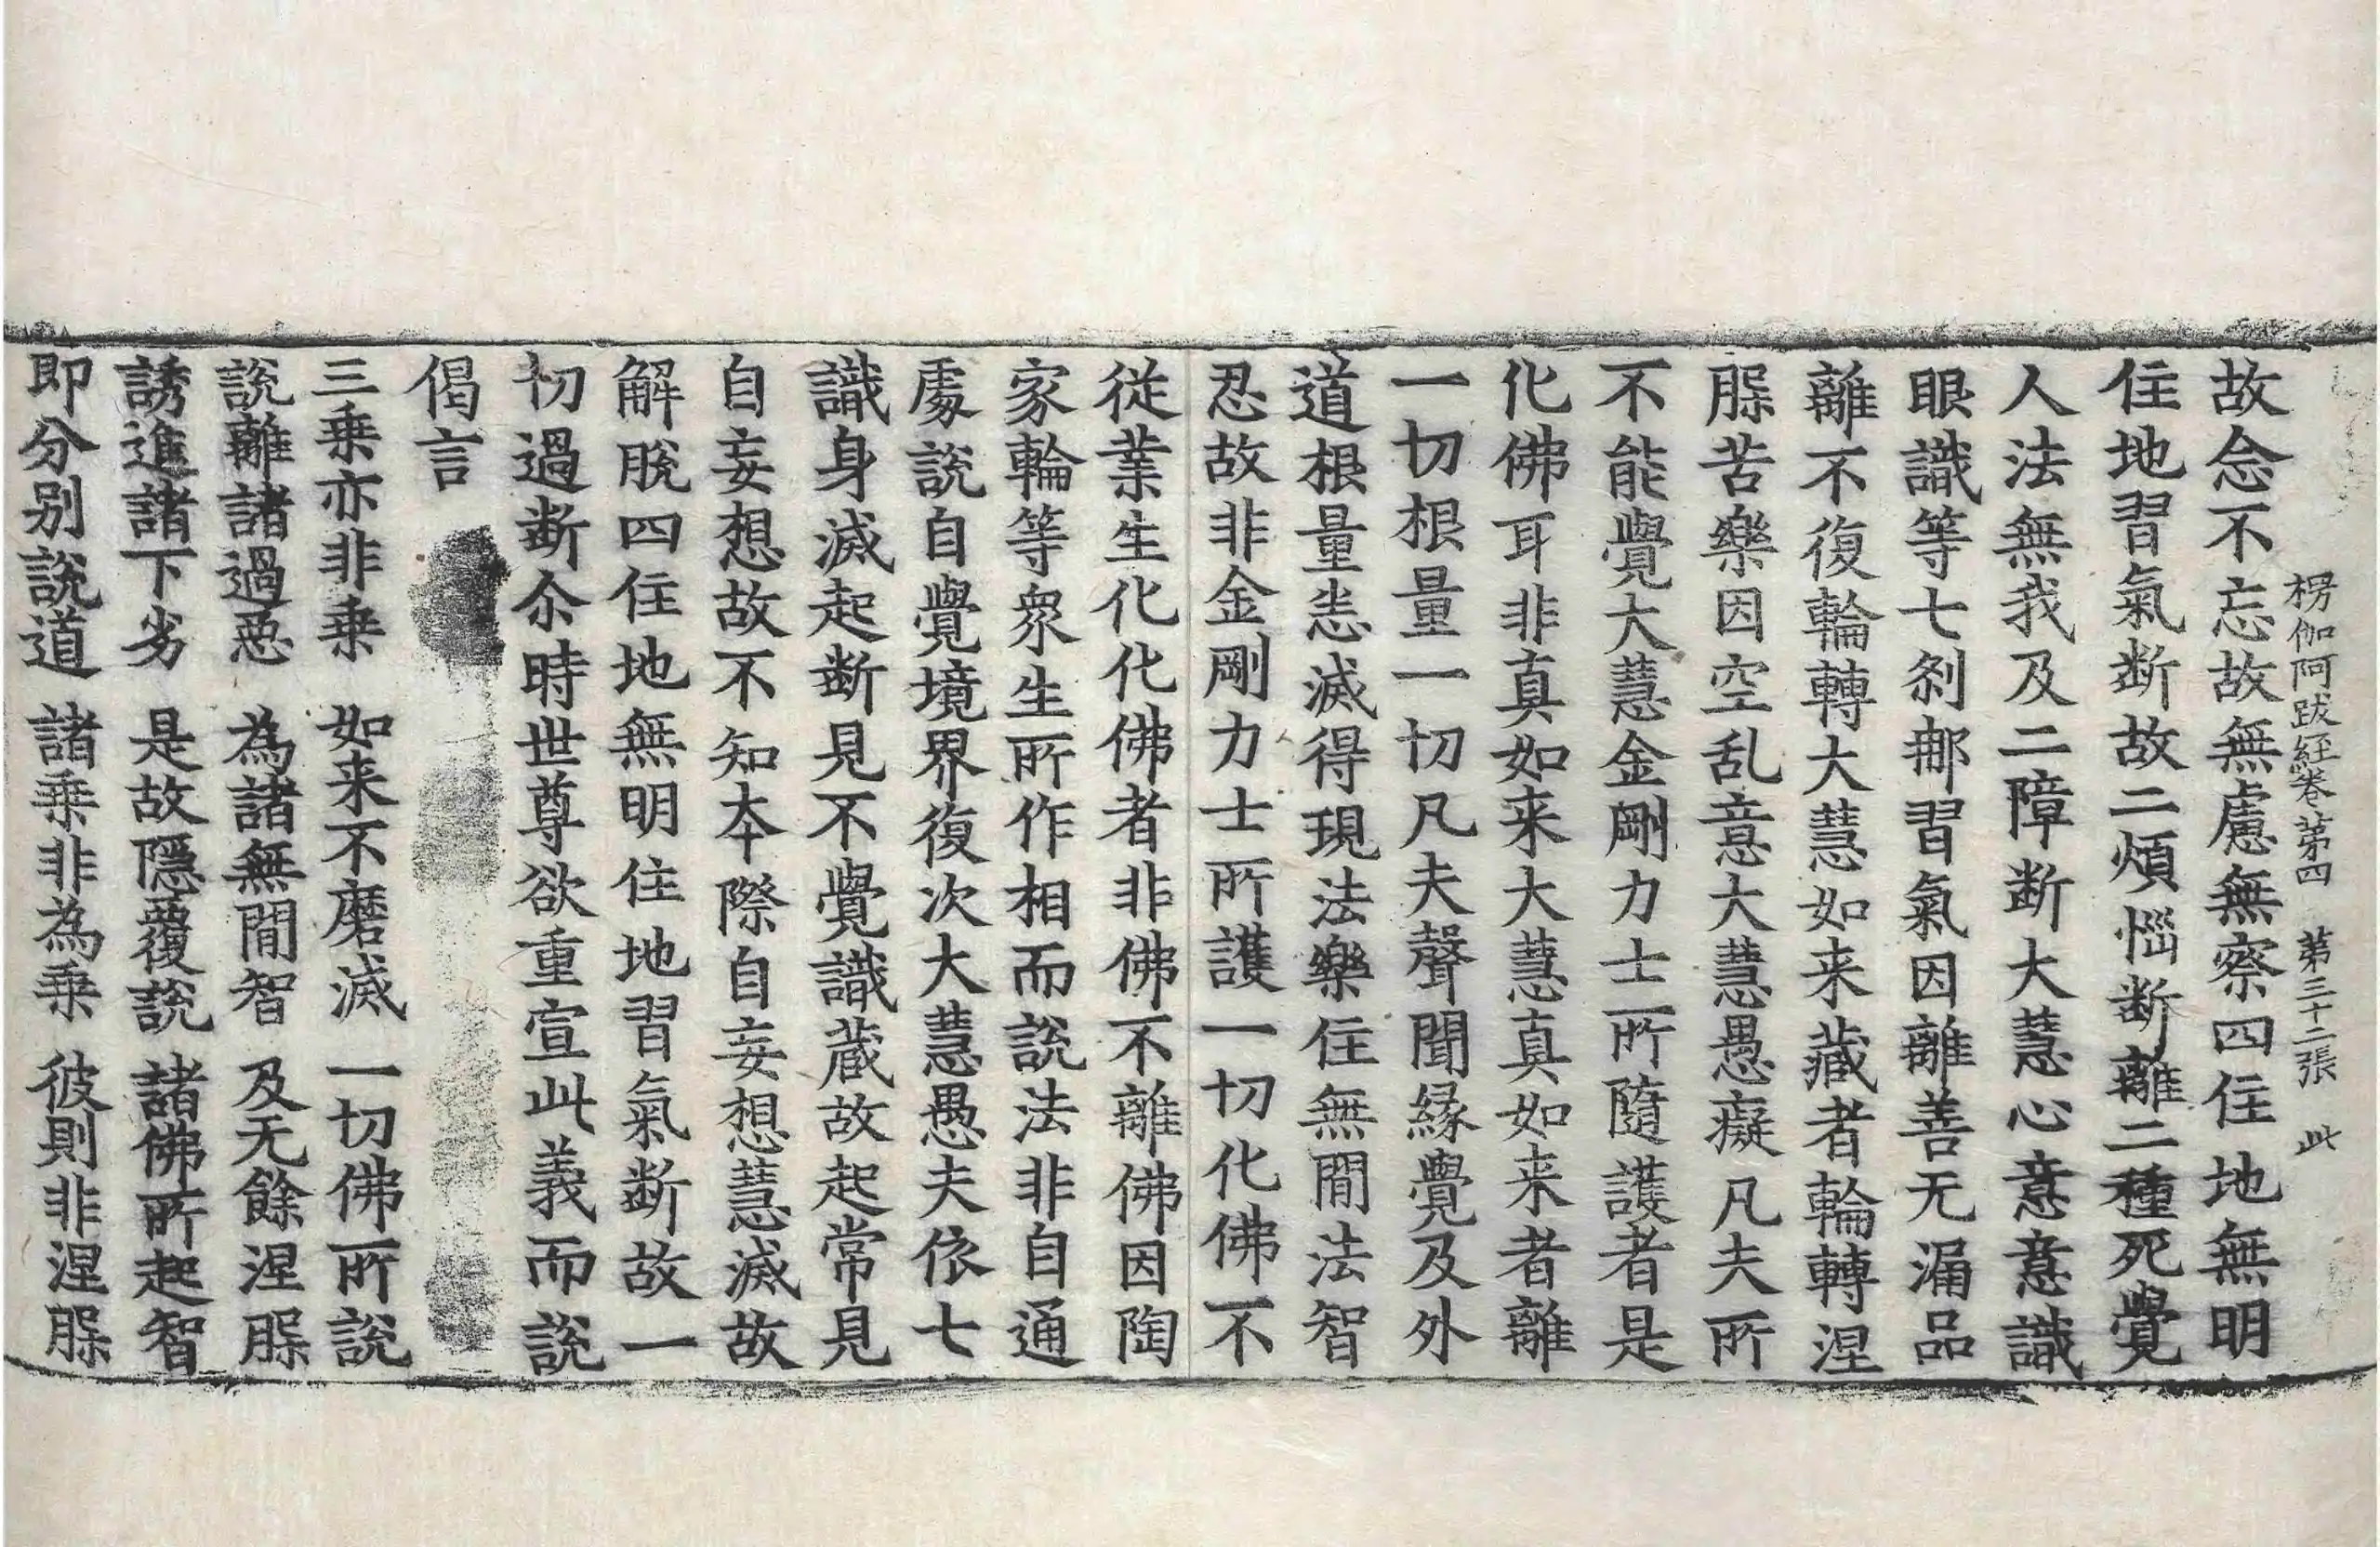 楞伽阿跋経巻第四 第三十二張 此
故念不忘故無慮無察四住地無明
住地習氣断故二煩惱断離二種死覺
人法無我及二障断大慧心意意識
眼識等七刹那習氣因離善无漏品
離不復輪轉大慧如来藏者輪轉涅
槃苦樂因空乱意大慧愚癡凡夫所
不能覺大慧金剛力士所隨護者是
化佛耳非真如来大慧真如来者離
一切根量一切凡夫聲聞縁覺及外
道根量悉滅得現法樂住無間法智
忍故非金剛力士所護一切化佛不
從業生化化佛者非佛不離佛因陶
家輪等衆生所作相而說法非自通
處說自覺境界復次大慧愚夫依七
識身滅起断見不覺識蔵故起常見
自妄想故不知本際自妄想慧滅故
解脫四住地無明住地習氣断故一
切過断尒時世尊欲重宣此義而說
偈言
三乗亦非乗 如来不磨滅 一切佛所說
說離諸過惡 為諸無間智 及无餘涅槃
誘進諸下劣 是故隱覆說 諸佛所起智
即分别說道 諸乗非為乗 彼則非涅槃